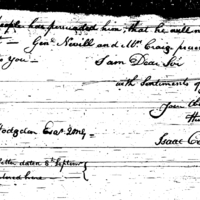 people has persuaded him, that he will no
Genl Nevill and Mr Craig
to You — I am Dear Sir
with Sentiments of
Your
Isaac Cr
Hodgdon Esqr
letter dated 5th Septemr